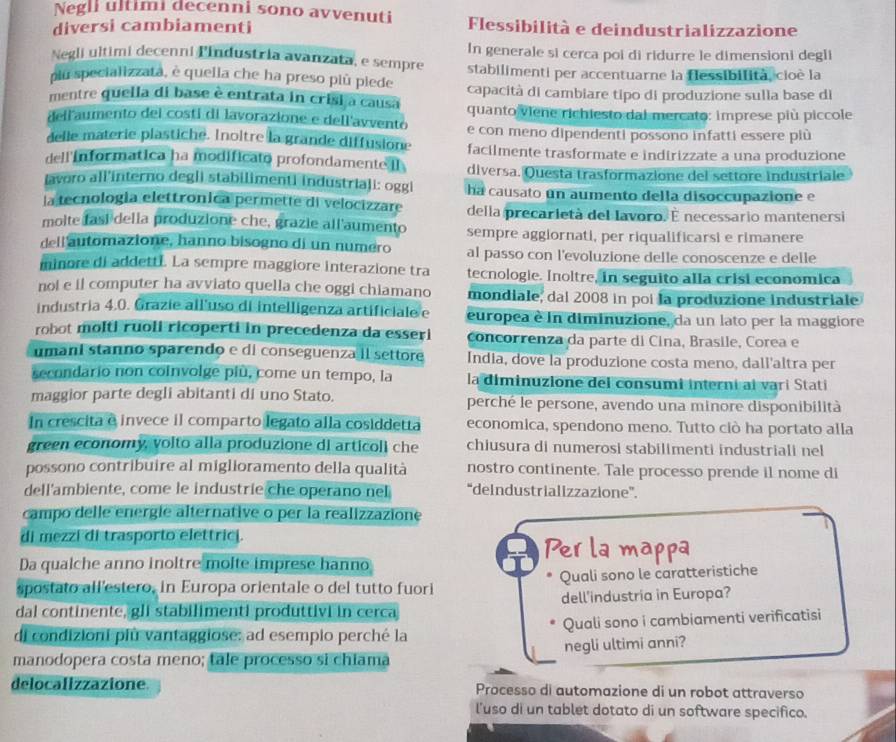 Negli ultimi decenni sono avvenuti
diversi cambiamenti
Negli ultimi decenni l'industria avanzata, e sempre
più specializzata, è quella che ha preso più piede
mentre quella di base è entrata in crisi a causa
dell'aumento dei costi di lavorazione e dell'avvento
delle materie plastiche. Inoltre la grande diffusione
dell'informatica ha modificato profondamente il
lavoro all'interno degli stabilimenti industriali: oggi
la tecnologia elettronica permette di velocizzare
molte fasi della produzione che, grazie all'aumento
dell'automazione, hanno bisogno di un numero
minore di addetti. La sempre maggiore interazione tra
noi e il computer ha avviato quella che oggi chiamano
industria 4.0. Grazie all'uso di intelligenza artificiale e
robot molti ruoli ricoperti in precedenza da esseri
umani stanno sparendo e di conseguenza il settore
secondario non coinvolge più, come un tempo, la
maggior parte degli abitanti di uno Stato.
In crescita è invece il comparto legato alla cosiddetta
green economy, volto alla produzione di articoli che
possono contribuire al miglioramento della qualità
dell'ambiente, come le industrie che operano nel
campo delle energie alternative o per la realizzazione
di mezzi di trasporto elettrici.
Da qualche anno inoltre molte imprese hanno
spostato all'estero, in Europa orientale o del tutto fuori
dal continente, gli stabilimenti produttivi in cerca
di condizioni più vantaggiose: ad esempio perché la
manodopera costa meno; tale processo si chiama
delocalizzazione.
Flessibilità e deindustrializzazione
In generale si cerca poi di ridurre le dimensioni degli
stabilimenti per accentuarne la flessibilità, cioè la
capacità di cambiare tipo di produzione sulla base di
quanto viene richiesto dal mercato: imprese più piccole
e con meno dipendenti possono infatti essere più
facilmente trasformate e indirizzate a una produzione
diversa. Questa trasformazione del settore industriale
ha causato un aumento della disoccupazione e
della precarietà del lavoro. È necessario mantenersi
sempre aggiornati, per riqualificarsi e rimanere
al passo con l'evoluzione delle conoscenze e delle
tecnologie. Inoltre, in seguito alla crisi economica
mondiale, dal 2008 in poi la produzione industriale
europea è in diminuzione, da un lato per la maggiore
concorrenza da parte di Cina, Brasile, Corea e
India, dove la produzione costa meno, dall'altra per
la diminuzione dei consumi interni ai vari Stati
perché le persone, avendo una minore disponibilità
economica, spendono meno. Tutto ciò ha portato alla
chiusura di numerosi stabilimenti industriali nel
nostro continente. Tale processo prende il nome di
"deindustrializzazione".
Per la mappa
• Quali sono le caratteristiche
dell'industria in Europa?
• Quali sono i cambiamenti verificatisi
negli ultimi anni?
Processo di automazione di un robot attraverso
l'uso di un tablet dotato di un software specifico.